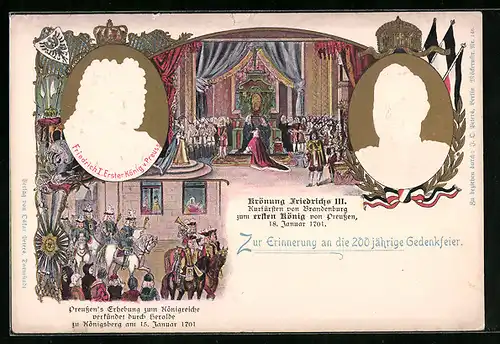 Friedrich I. Erster König v. Preuss.
Krönung Friedrichs III.
Kurfürsten von Brandenburg
zum ersten König von Preußen,
18. Januar 1701.
Zur Erinnerung an die 200jährige Gedenkfeier.
Preußen's Erhebung zum Königreiche
verkündet durch Herolde
zu Königsberg am 15. Januar 1701
Verlag von
Zu beziehen durch: J. C.
Berlin